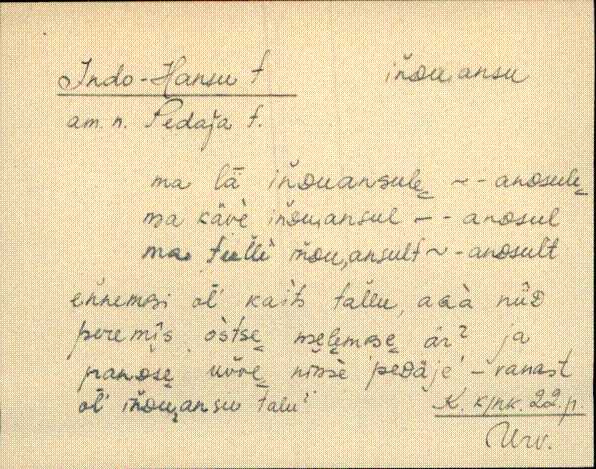 Indo-Hansu t. iňou,ansu
am. n. Pedaja t.
ma lä iňouansule ~ -anosule
ma käve iňou,ansul ~ - anosul
ma tulli iňou,ansult ~ -anosult
ennemasi ol' kaits tallu, aga nüid
peremis ostse är? ja
panose uvve nime pedäje - vanast
ol' iňou,ansu talu?
K. kjnk. 22.p
Urv.